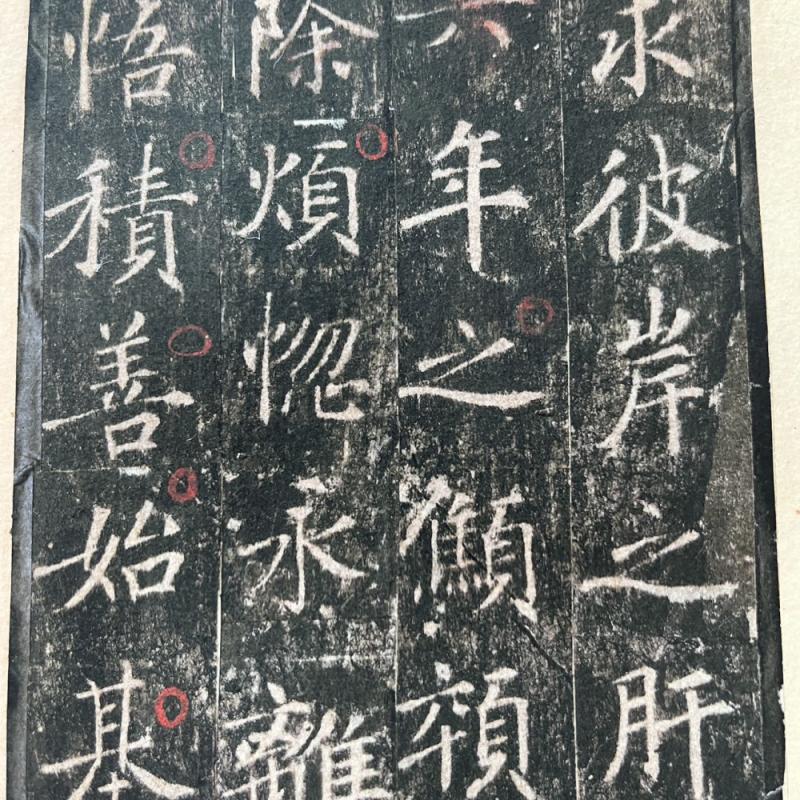 求彼岸之肝
六年之顦顇
除煩惚永離
悟積善始基